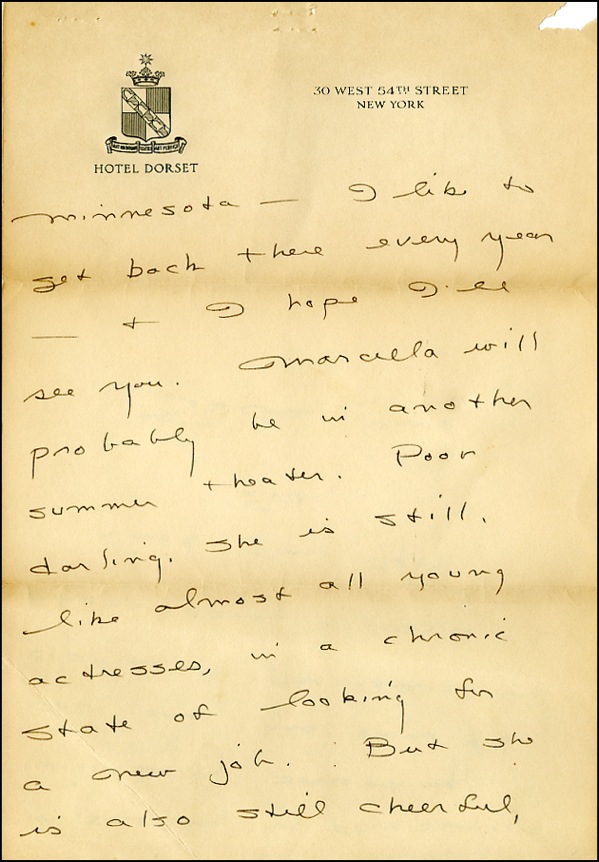 30 WEST 54TH STREET
NEW YORK
HOTEL DORSET
Minnesota — I like to
get back there every year
— & I hope I'll
see you. Marcella will
probably be in another
summer theater. Poor
darling. she is still,
like almost all young
actresses, in a chronic
state of looking for
a new job. But she
is also still cheerful,